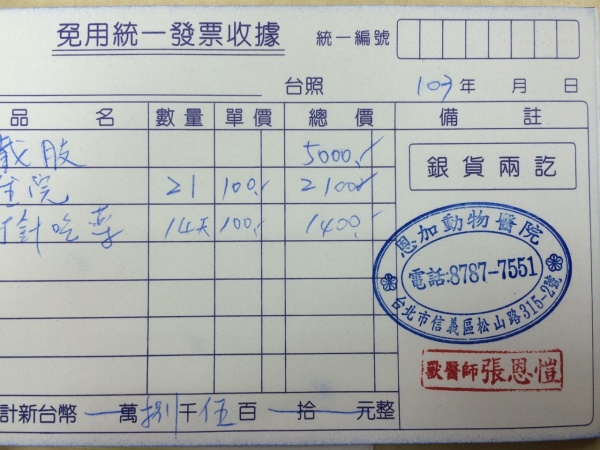 免用統一發票收據 統一編號
台照 103年 月 日
品名 數量 單價 總價 備註
截肢 5000.
住院 21 100. 2100
打針吃藥 14天 100. 1400.
銀貨兩訖
恩加動物醫院
電話:8787-7551
台北市信義區松山路315-2號
獸醫師 張恩愷
計新台幣 萬捌千伍百 拾 元整